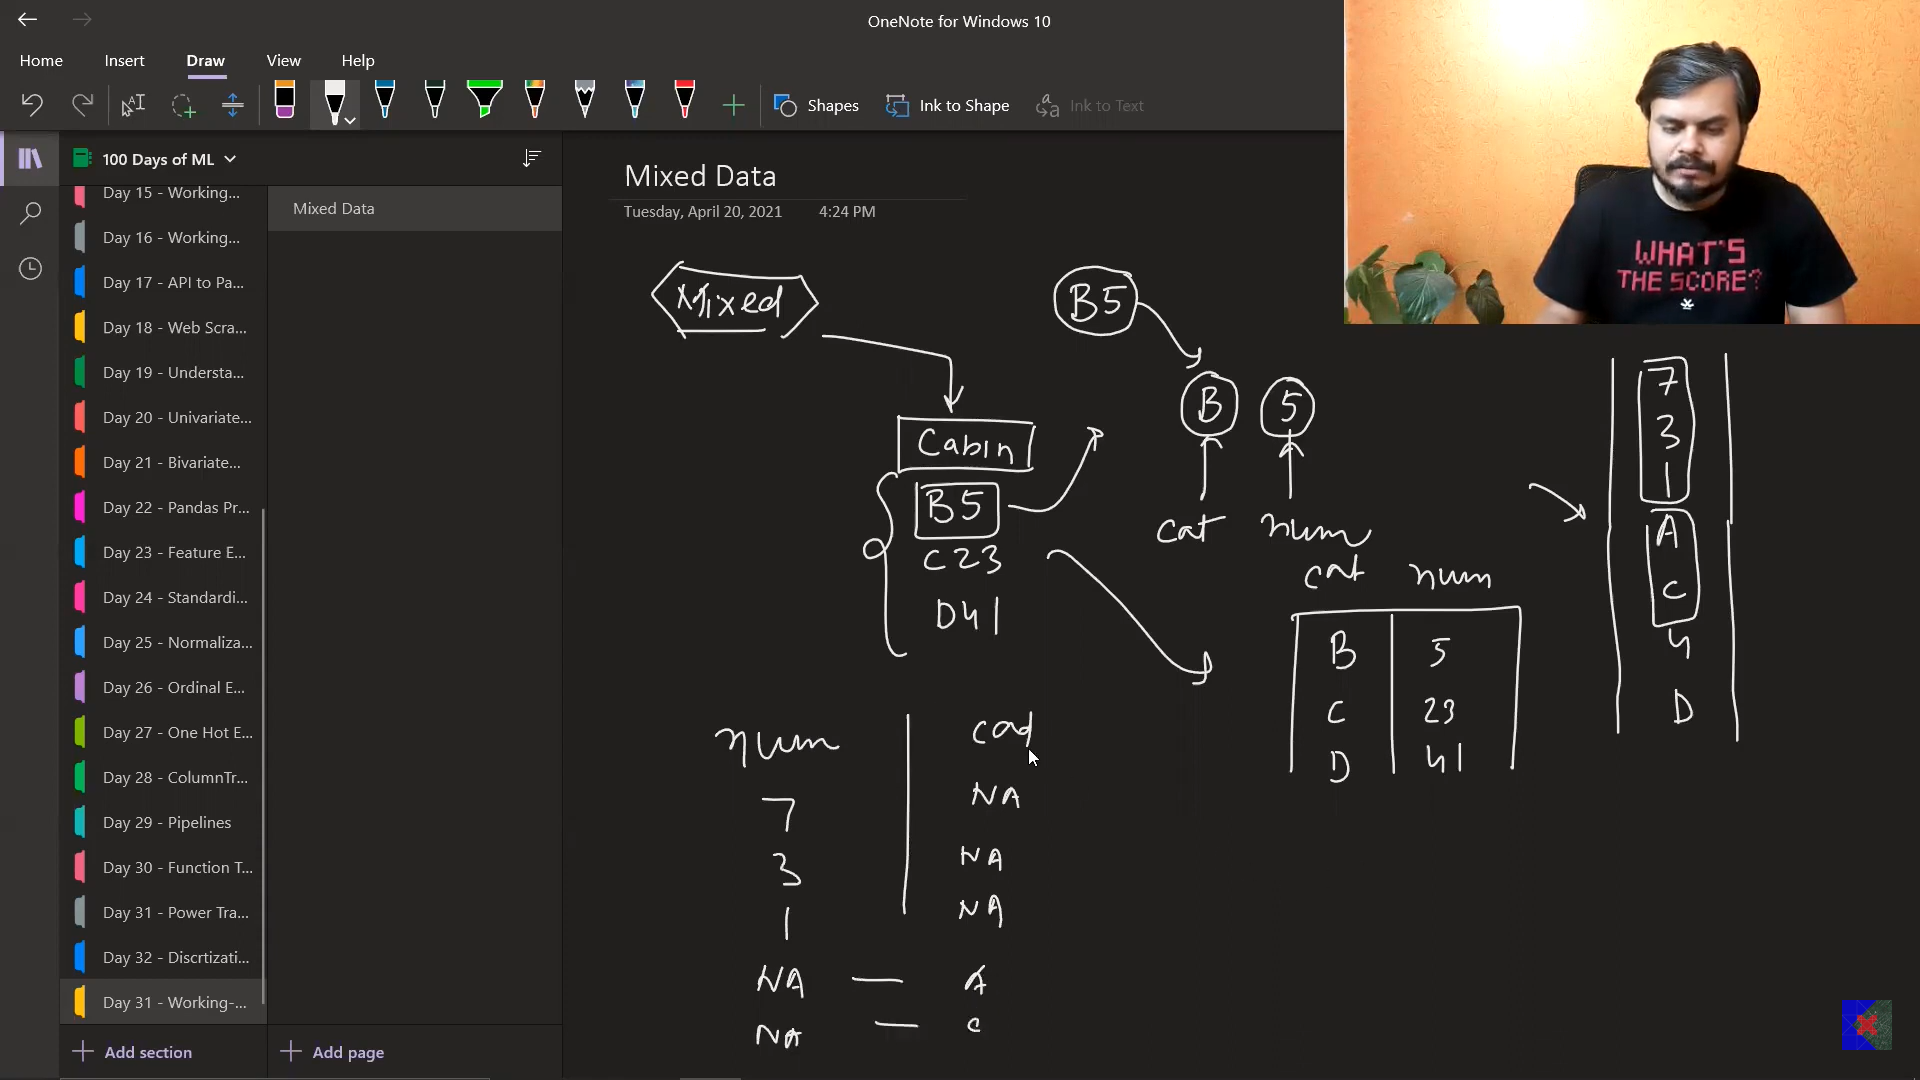 OneNote for Windows 10
Home Insert Draw View Help
Shapes Ink to Shape Ink to Text
100 Days of ML
Day 15 - Working...
Day 16 - Working...
Day 17 - API to Pa...
Day 18 - Web Scra...
Day 19 - Understa...
Day 20 - Univariate...
Day 21 - Bivariate...
Day 22 - Pandas Pr...
Day 23 - Feature E...
Day 24 - Standardi...
Day 25 - Normaliza...
Day 26 - Ordinal E...
Day 27 - One Hot E...
Day 28 - ColumnTr...
Day 29 - Pipelines
Day 30 - Function T...
Day 31 - Power Tra...
Day 32 - Discrtizati...
Day 31 - Working-...
Add section
Mixed Data
Add page
Mixed Data
Tuesday, April 20, 2021 4:24 PM
WHAT'S
THE SCORE?
Mixed
Cabin
B5
C23
D41
B5
B 5
cat num
cat num
B 5
C 23
D 41
7
3
1
A
C
4
D
num cat
7 NA
3 NA
1 NA
NA — A
NA — C